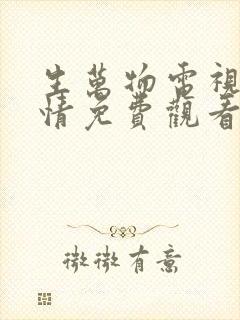 生萬物電視
情免費觀看
微微有意